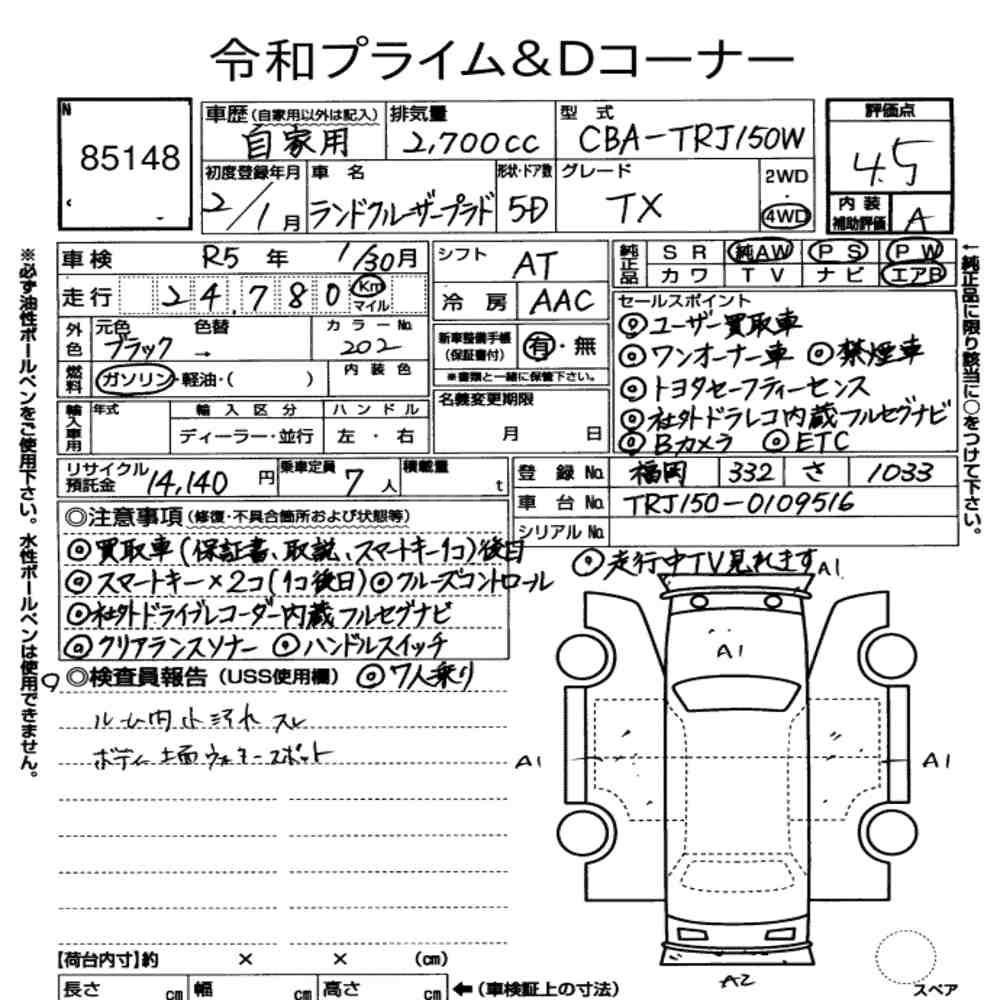 令和プライム＆Dコーナー
N
85148
車歴 (自家用以外は記入) 自家用
排気量 2,700cc
型式 CBA-TRJ150W
評価点 4.5
初度登録年月 2/1月
車名 ランドクルーザープラド
形状・ドア数 5D
グレード TX
2WD
4WD
内装補助評価 A
車検 R5年 1/30月
シフト AT
純正品 SR 純AW PS PW
カワ TV ナビ エアB
走行 24,780 Km マイル
冷房 AAC
外色 元色 ブラック 色替 → カラーNo. 202
新車整備手帳(保証書付) 有・無
※書類と一緒に保管下さい。
セールスポイント
◎ユーザー買取車
◎ワンオーナー車 ◎禁煙車
◎トヨタセーフティーセンス
◎社外ドラレコ内蔵フルセグナビ
◎Bカメラ ◎ETC
燃料 ガソリン・軽油・( )
内装色
名義変更期限 月 日
輸入車用 年式 輸入区分 ハンドル
ディーラー・並行 左・右
リサイクル預託金 14,140円
乗車定員 7人
積載量 t
登録No. 福岡 332 さ 1033
車台No. TRJ150-0109516
シリアルNo.
◎注意事項(修復・不具合箇所および状態等)
◎買取車(保証書、取説、スマートキー1コ)後日
◎スマートキー×2コ(1コ後日)◎クルーズコントロール
◎社外ドライブレコーダー内蔵フルセグナビ
◎クリアランスソナー ◎ハンドルスイッチ
◎検査員報告(USS使用欄) ◎7人乗り
◎走行中TV見れます
ルーム内小汚れ スレ
ボディー上面ウォータースポット
A1
A1
A1
A1
A2
スペア
【荷台内寸】約 × × (cm)
長さ cm 幅 cm 高さ cm ←(車検証上の寸法)
※必ず油性ボールペンをご使用下さい。水性ボールペンは使用できません。
←純正品に限り該当に○をつけて下さい。